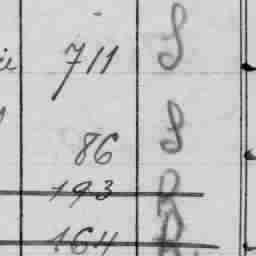 711 S
86 S
193 R
164 R